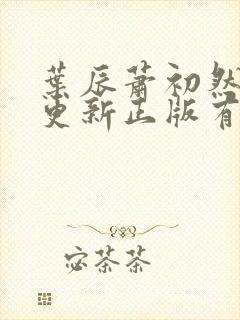 葉辰蕭初然
更新正版有
宓茶茶